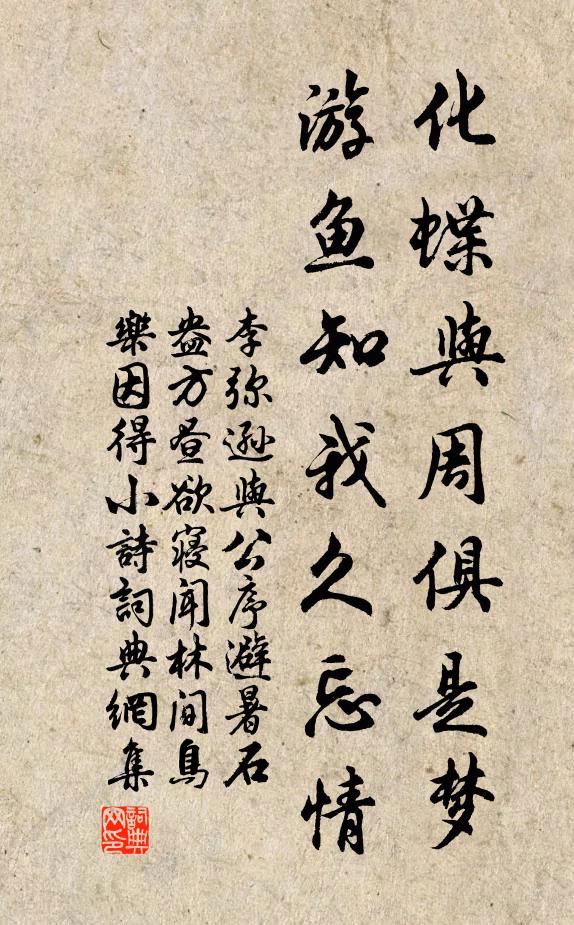 化蝶與周俱是梦
游鱼知我久忘情
李弥遜與公序避暑石
盎方昼欲寝闻林间鳥
樂因得小詩詞典網集
詞典
网印